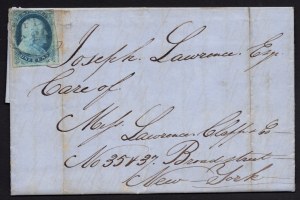 Joseph Lawrence Esq
Care of
Mess Lawrence Clapp & Co
No 35 & 37 Broad street
New York